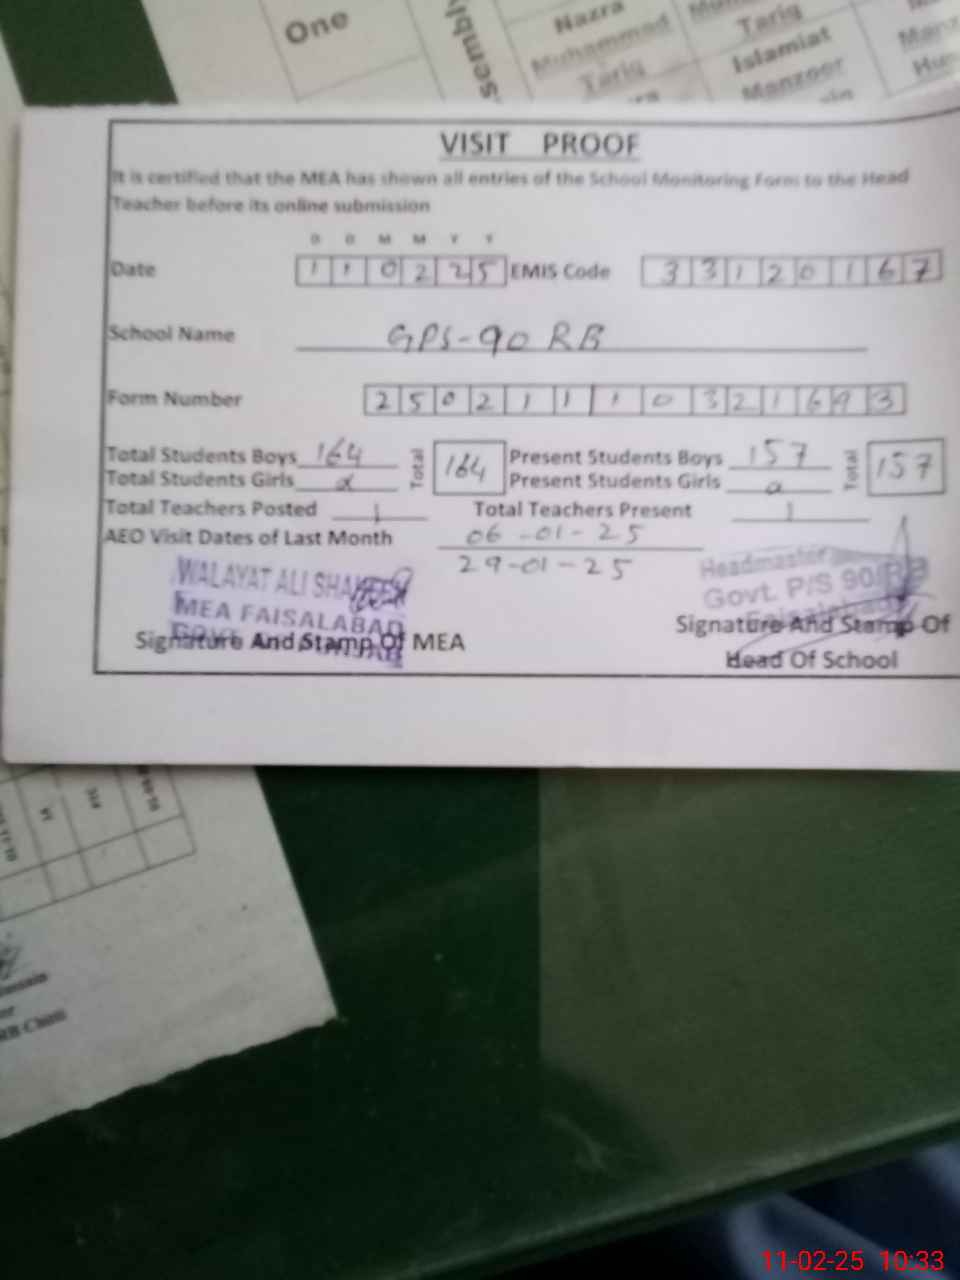 One
Nazra
Muhammad
Tariq
Tariq
Islamiat
Manzoor
VISIT PROOF
It is certified that the MEA has shown all entries of the School Monitoring Form to the Head
Teacher before its online submission
D D M M Y Y
Date 1 1 0 2 2 5 EMIS Code 3 3 1 2 0 1 6 7
School Name GPS-90 RB
Form Number 2 5 0 2 1 1 1 0 3 2 1 6 9 3
Total Students Boys 164 Total 164 Present Students Boys 157 Total 157
Total Students Girls Present Students Girls
Total Teachers Posted 1 Total Teachers Present 1
AEO Visit Dates of Last Month 06-01-25
29-01-25
WALAYAT ALI
MEA FAISALABAD
Headmaster
Govt. P/S 90/RB
Faisalabad
Signature And Stamp Of MEA
Signature And Stamp Of
Head Of School
11-02-25 10:33